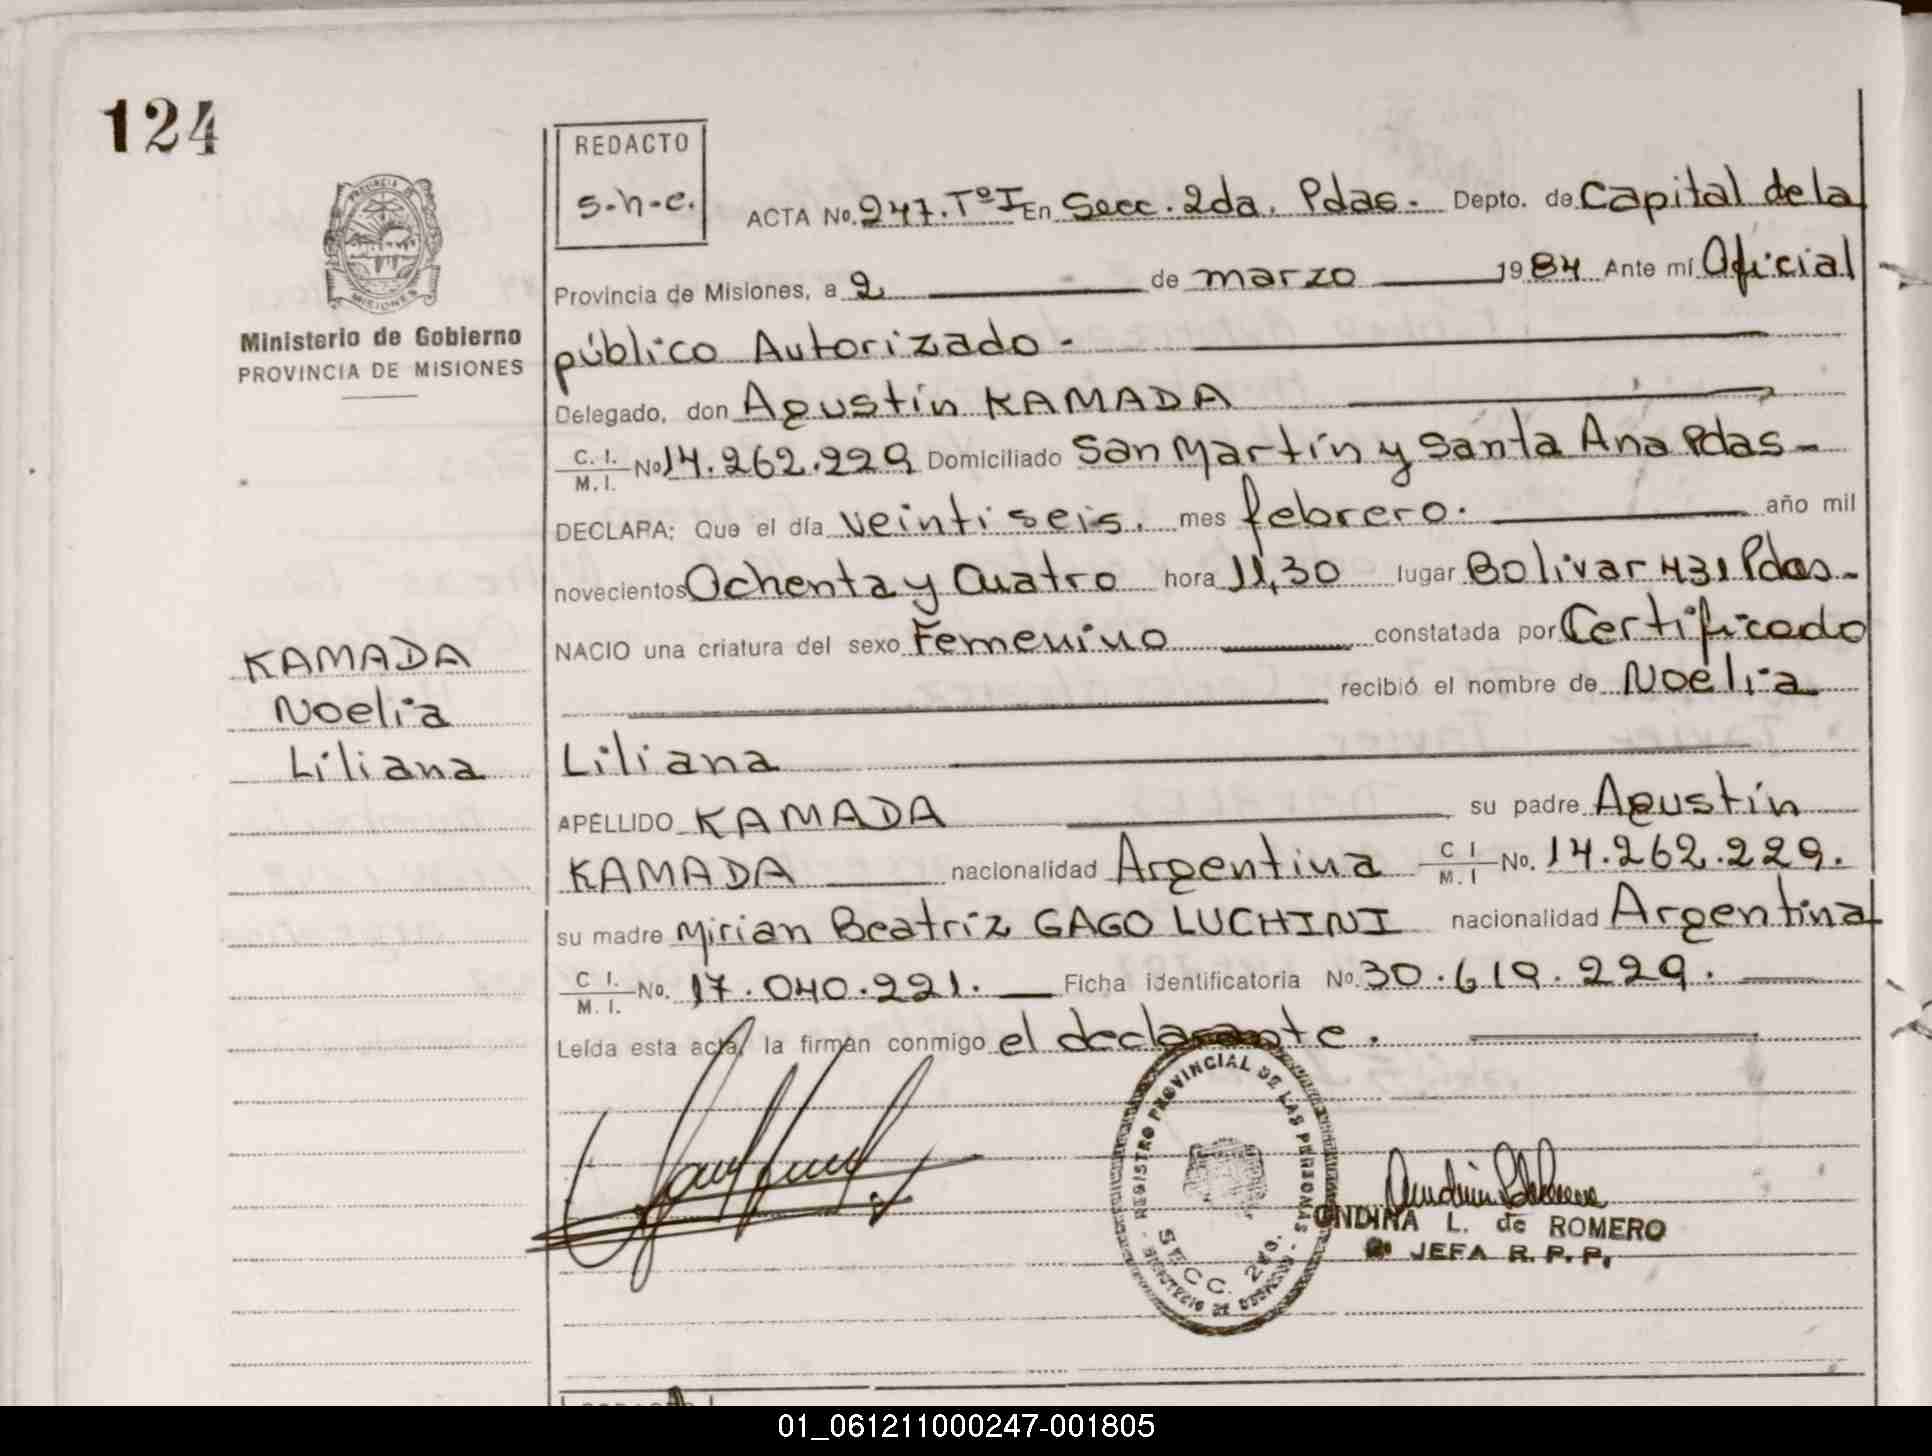 124
REDACTO
s-h-c.
ACTA No. 247. Tº I En Secc. 2da. Pdas. Depto. de Capital de la
Provincia de Misiones, a 2 de marzo 1984 Ante mí Oficial
público Autorizado -
Delegado, don Agustín KAMADA
C. I. M. I. No 14.262.229 Domiciliado San Martín y Santa Ana Pdas -
DECLARA: Que el día veintiseis. mes febrero. año mil
novecientos Ochenta y Cuatro hora 11,30 lugar Bolivar 431 Pdas -
NACIO una criatura del sexo Femenino constatada por Certificado
recibió el nombre de Noelia
Liliana
APELLIDO KAMADA su padre Agustín
KAMADA nacionalidad Argentina C I M. I No. 14.262.229.
su madre Mirian Beatriz GAGO LUCHINI nacionalidad Argentina
C I. M. I. No. 17.040.221. Ficha identificatoria No. 30.619.229.
Leída esta acta, la firman conmigo el declarante.
PROVINCIA DE
MISIONES
Ministerio de Gobierno
PROVINCIA DE MISIONES
KAMADA
Noelia
Liliana
REGISTRO PROVINCIAL DE LAS PERSONAS
SECC. 2da.
ONDINA L. de ROMERO
JEFA R. P. P.
01_061211000247-001805